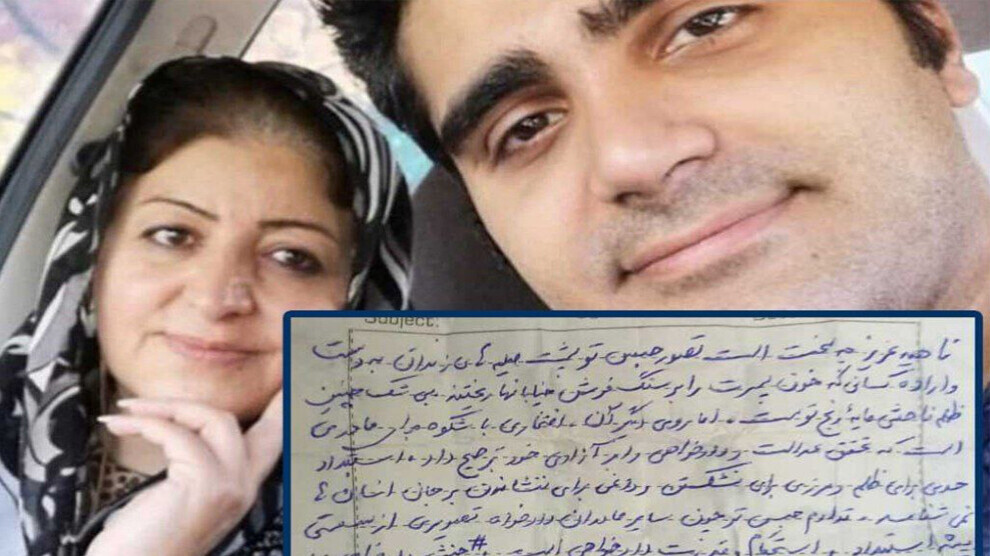 Subject:
ناهید عزیز چه سخت است تصور حبس تو پشت میله های زندان به دست
و اراده کسانی که خون پسرت را بر سنگ فرش خیابانها ریختند. بی شک چنین
ظلم فاحشی مایهٔ رنج توست. اما روی دیگر آن، افتخاری با شکوه برای مادری
است که تحقق عدالت و دادخواهی را بر آزادی خود ترجیح داد. استبداد
حدی برای ظلم و مرزی برای شکستن و داغی برای نشاندن بر جان انسان ها
نمی شناسد. تداوم حبس تو چون سایر مادران دادخواه تصویری از
استبداد و قدرت دادخواهی است. #